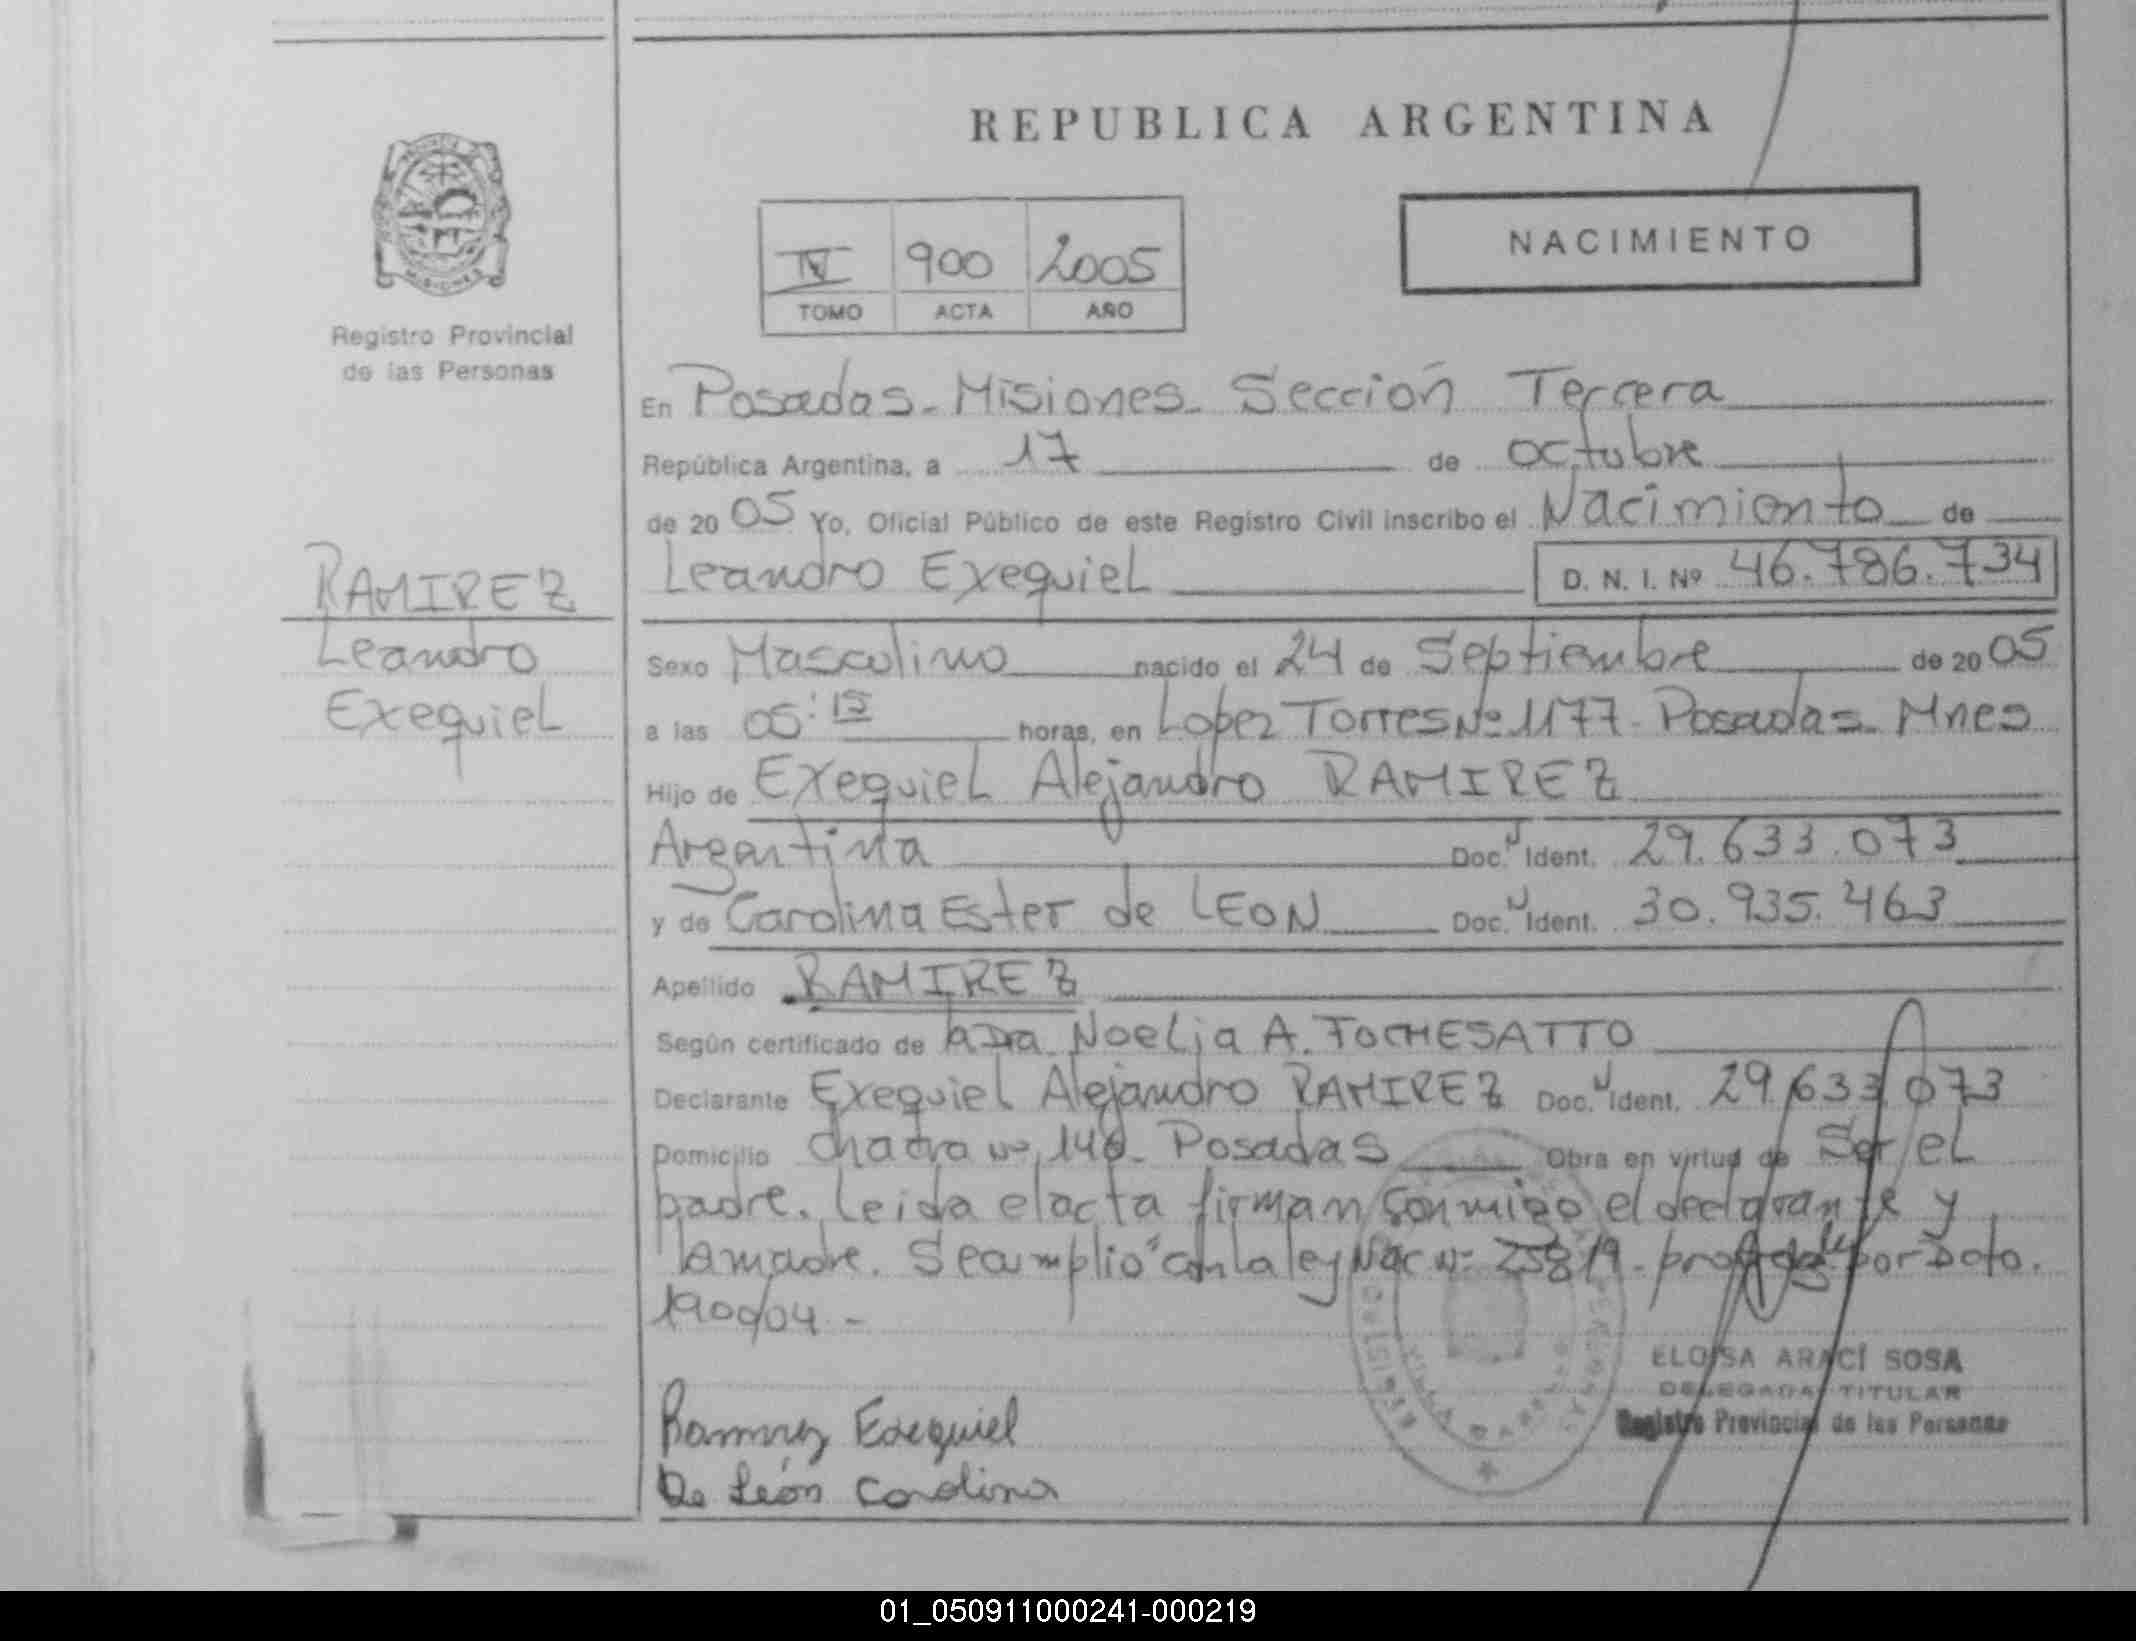 REPUBLICA ARGENTINA
MISIONES
Registro Provincial
de las Personas
IV 900 2005
TOMO ACTA AÑO
NACIMIENTO
En Posadas - Misiones - Sección Tercera
República Argentina, a 17 de octubre
de 2005 Yo, Oficial Público de este Registro Civil inscribo el Nacimiento de
Leandro Exequiel D. N. I. Nº 46.786.734
RAMIREZ
Leandro
Exequiel
Sexo Masculino nacido el 24 de Septiembre de 2005
a las 05:15 horas, en Lopez Torres Nº 1177 - Posadas - Mnes
Hijo de Exequiel Alejandro RAMIREZ
Argentina Doc. Ident. 29.633.073
y de Carolina Ester de LEON Doc. Ident. 30.935.463
Apellido RAMIREZ
Según certificado de la Dra. Noelia A. FOCHESATTO
Declarante Exequiel Alejandro RAMIREZ Doc. Ident. 29.633.073
Domicilio chacra nº 146 - Posadas Obra en virtud de Ser el
padre. Leida el acta firman conmigo el declarante y
la madre. Se cumplio con la ley Nac nº 25819 - por Dcto.
190904 -
Ramirez Exequiel
De León Carolina
ELOISA ARACÍ SOSA
DELEGADA TITULAR
Registro Provincial de las Personas
01_050911000241-000219